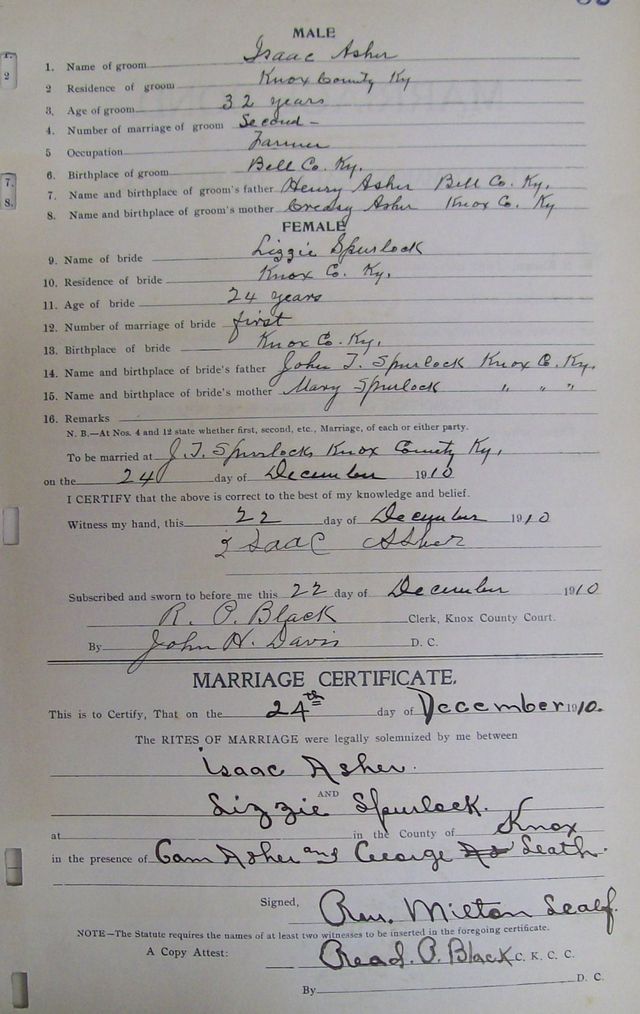 MALE
1. Name of groom Isaac Asher
2 Residence of groom Knox County Ky
3. Age of groom 32 years
4. Number of marriage of groom Second -
5 Occupation Farmer
6. Birthplace of groom Bell Co. Ky.
7. Name and birthplace of groom's father Henry Asher Bell Co. Ky.
8. Name and birthplace of groom's mother Creasy Asher Knox Co. Ky
FEMALE
9. Name of bride Lizzie Spurlock
10. Residence of bride Knox Co. Ky.
11. Age of bride 24 years
12. Number of marriage of bride first
13. Birthplace of bride Knox Co. Ky.
14. Name and birthplace of bride's father John T. Spurlock Knox Co. Ky.
15. Name and birthplace of bride's mother Mary Spurlock " " "
16. Remarks
N. B.—At Nos. 4 and 12 state whether first, second, etc., Marriage, of each or either party.
To be married at J. T. Spurlocks Knox County Ky.
on the 24 day of December 1910
I CERTIFY that the above is correct to the best of my knowledge and belief.
Witness my hand, this 22 day of December 1910
Isaac Asher
Subscribed and sworn to before me this 22 day of December 1910
R. P. Black Clerk, Knox County Court.
By John H. Davis D. C.
MARRIAGE CERTIFICATE.
This is to Certify, That on the 24th day of December 1910.
The RITES OF MARRIAGE were legally solemnized by me between
Isaac Asher.
AND
Lizzie Spurlock.
at in the County of Knox
in the presence of Gam Asher and George Leath.
Signed, Rev. Milton Sealf.
NOTE—The Statute requires the names of at least two witnesses to be inserted in the foregoing certificate.
A Copy Attest: Read. P. Black C. K. C. C.
By D. C.
7.
8.
2